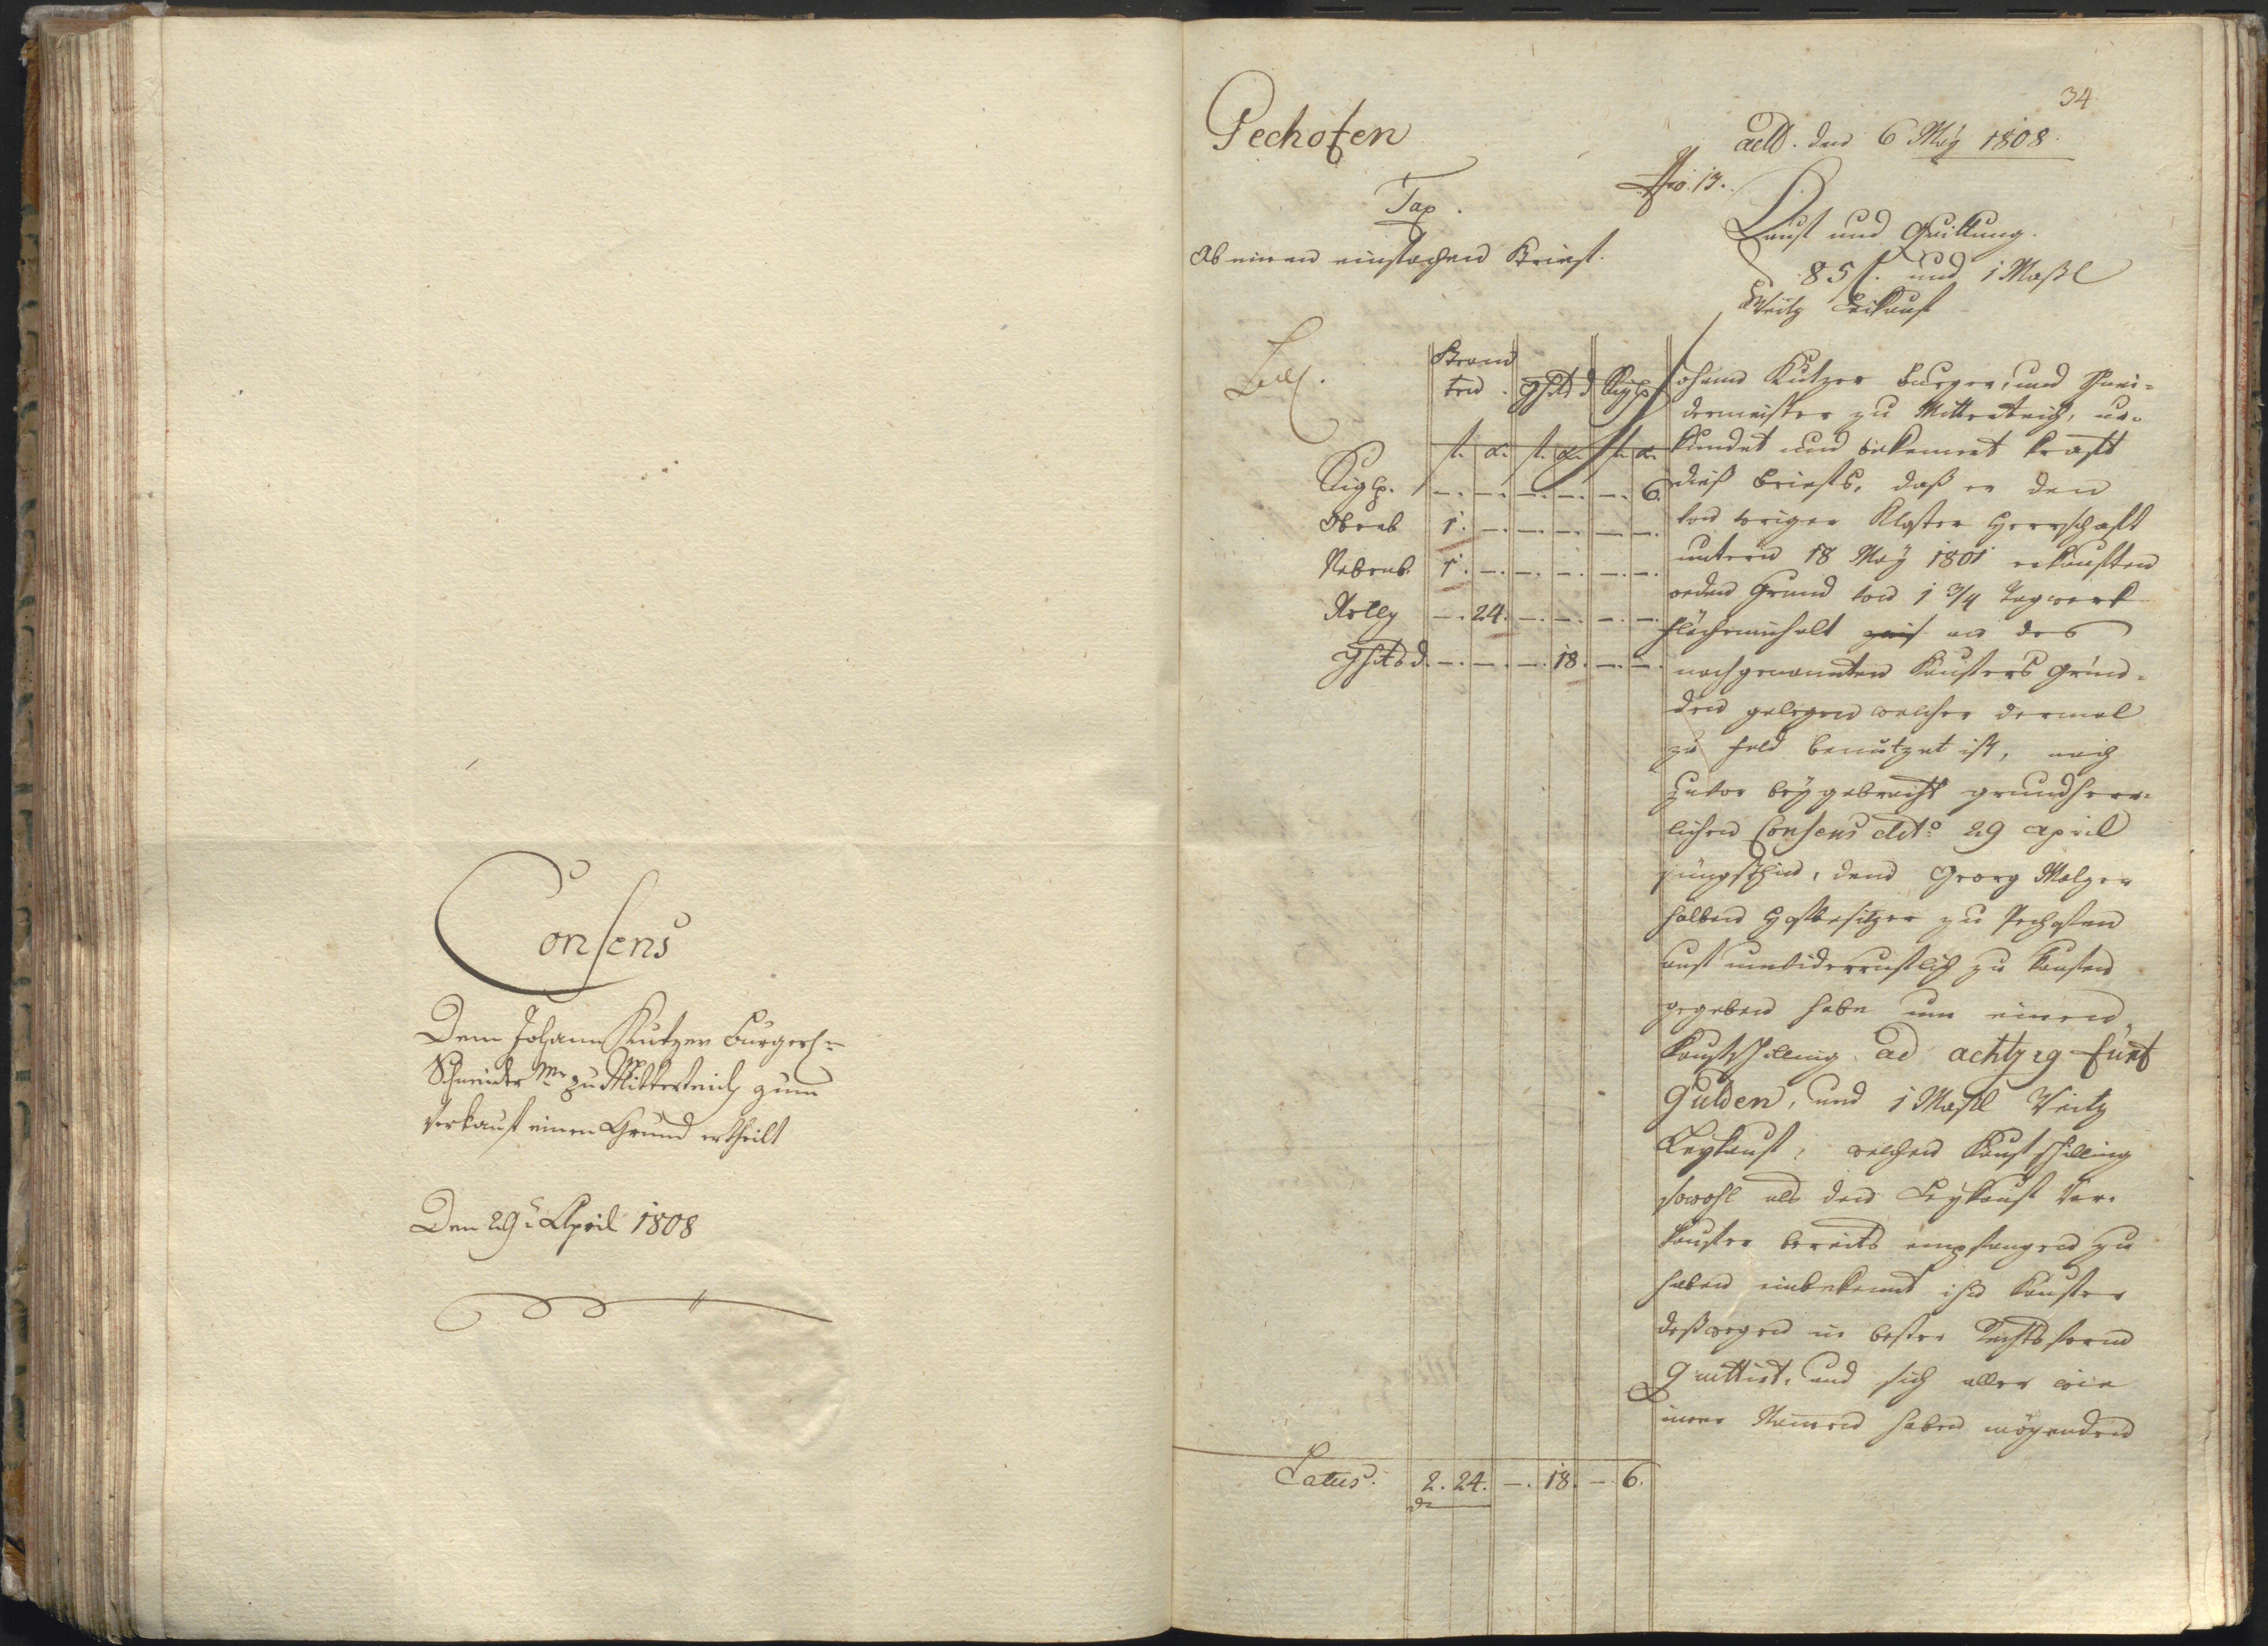 Consens
Dem Johann Kutzer Burgerl:
Schneider Mr zu Mitterteich zum
Verkauf einen Grund ertheilt
Den 29t April 1808
34
Pechofen
actl. den 6 May 1808.
Nro. 13.
Tax.
Ab einen einfachen Brief.
Kauf und Quittung.
85 f. und 1 Maßl
Weitz Leikauf
Beam
ten
Sigl.
f. x. f. x. f. x.
Sigl. – – – – – 6.
Obrab 1. – – – – –
Nebenb. 1. – – – – –
– 24. – – – –
– – – 18. – –
Johann Kutzer Burger, und Schnei-
dermeister zu Mitterteich, ur-
kundet und bekennet kraft
dieß Briefs, daß er den
von voriger Kloster Herrschaft
unterm 18 May 1801 erkauften
oeden Grund von 1 3/4 Tagwerk
Flächeninhalt an des
nachgenannten Käufers Grün-
den gelegen welcher dermal
zu Feld benutzet ist, nach
zuvor beygebracht grundherr-
lichen Consens ddto 29 April
jüngsthin, dem Georg Malzer
halben Hofbesitzer zu Pechofen
auf unwiderruflich zu kaufen
gegeben habe um einen
Kaufschilling ad achtzig fünf
Gulden, und 1 Maßl Weitz
Leykauf, welchen Kaufschilling
sowohl als den Leykauf Ver-
kaufer bereits empfangen zu
haben einbekennt ihn Käufer
deßwegen in bester Rechtsform
Quittirt, und sich aller wie
imer Namen haben mögenden
Latus. 2. 24. – 18. – 6.